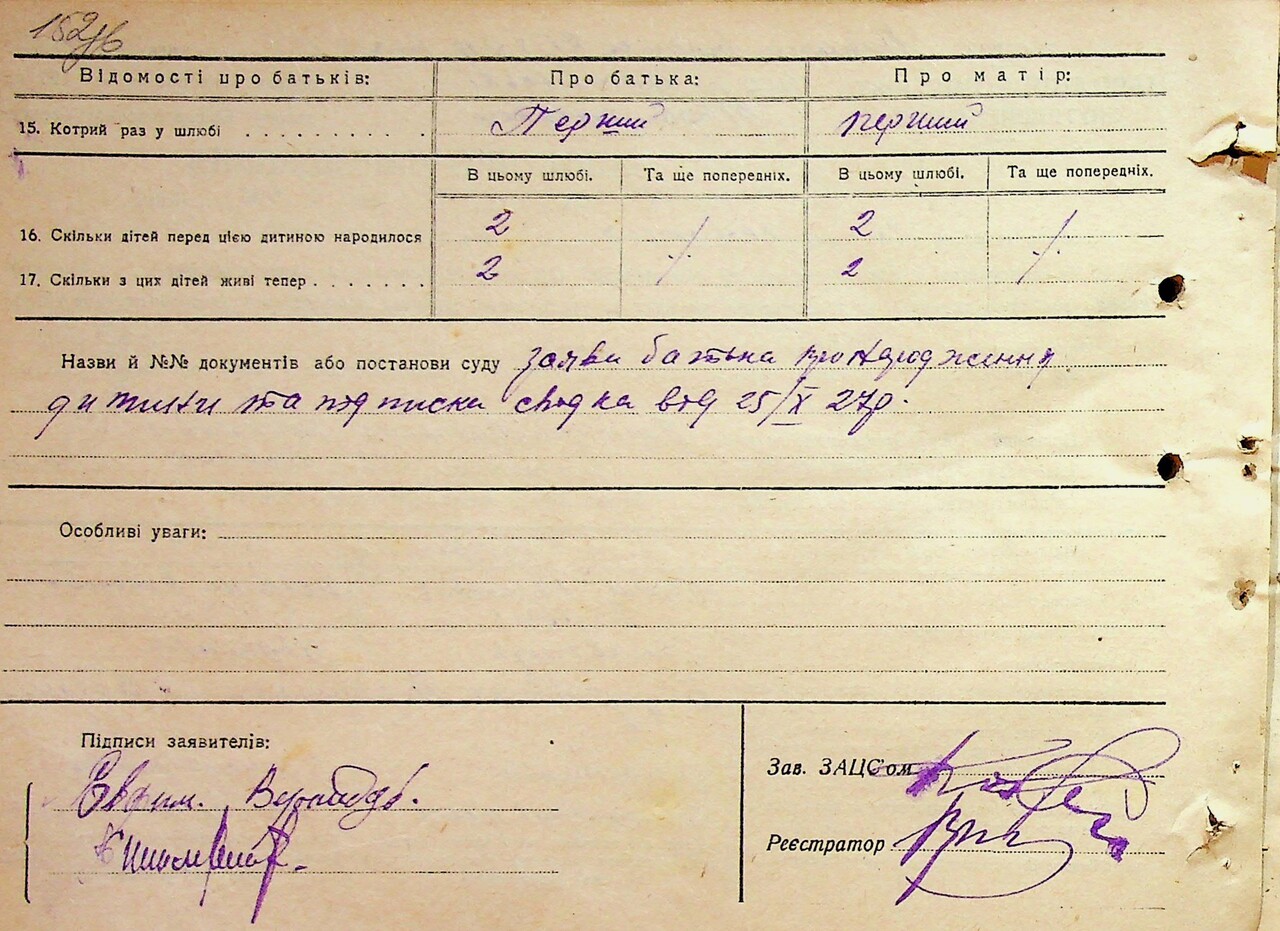 152/6
Відомості про батьків: Про батька: Про матір:
15. Котрий раз у шлюбі . . . . . . . . . . Перший перший
В цьому шлюбі. Та ще попередніх. В цьому шлюбі. Та ще попередніх.
16. Скільки дітей перед цією дитиною народилося 2 2
17. Скільки з цих дітей живі тепер . . . . . . . 2 2
Назви й №№ документів або постанови суду заява батька про народження
дитини та підписка свідка від 25/X 27р.
Особливі уваги:
Підписи заявителів:
Зав. ЗАЦС'ом
Реєстратор